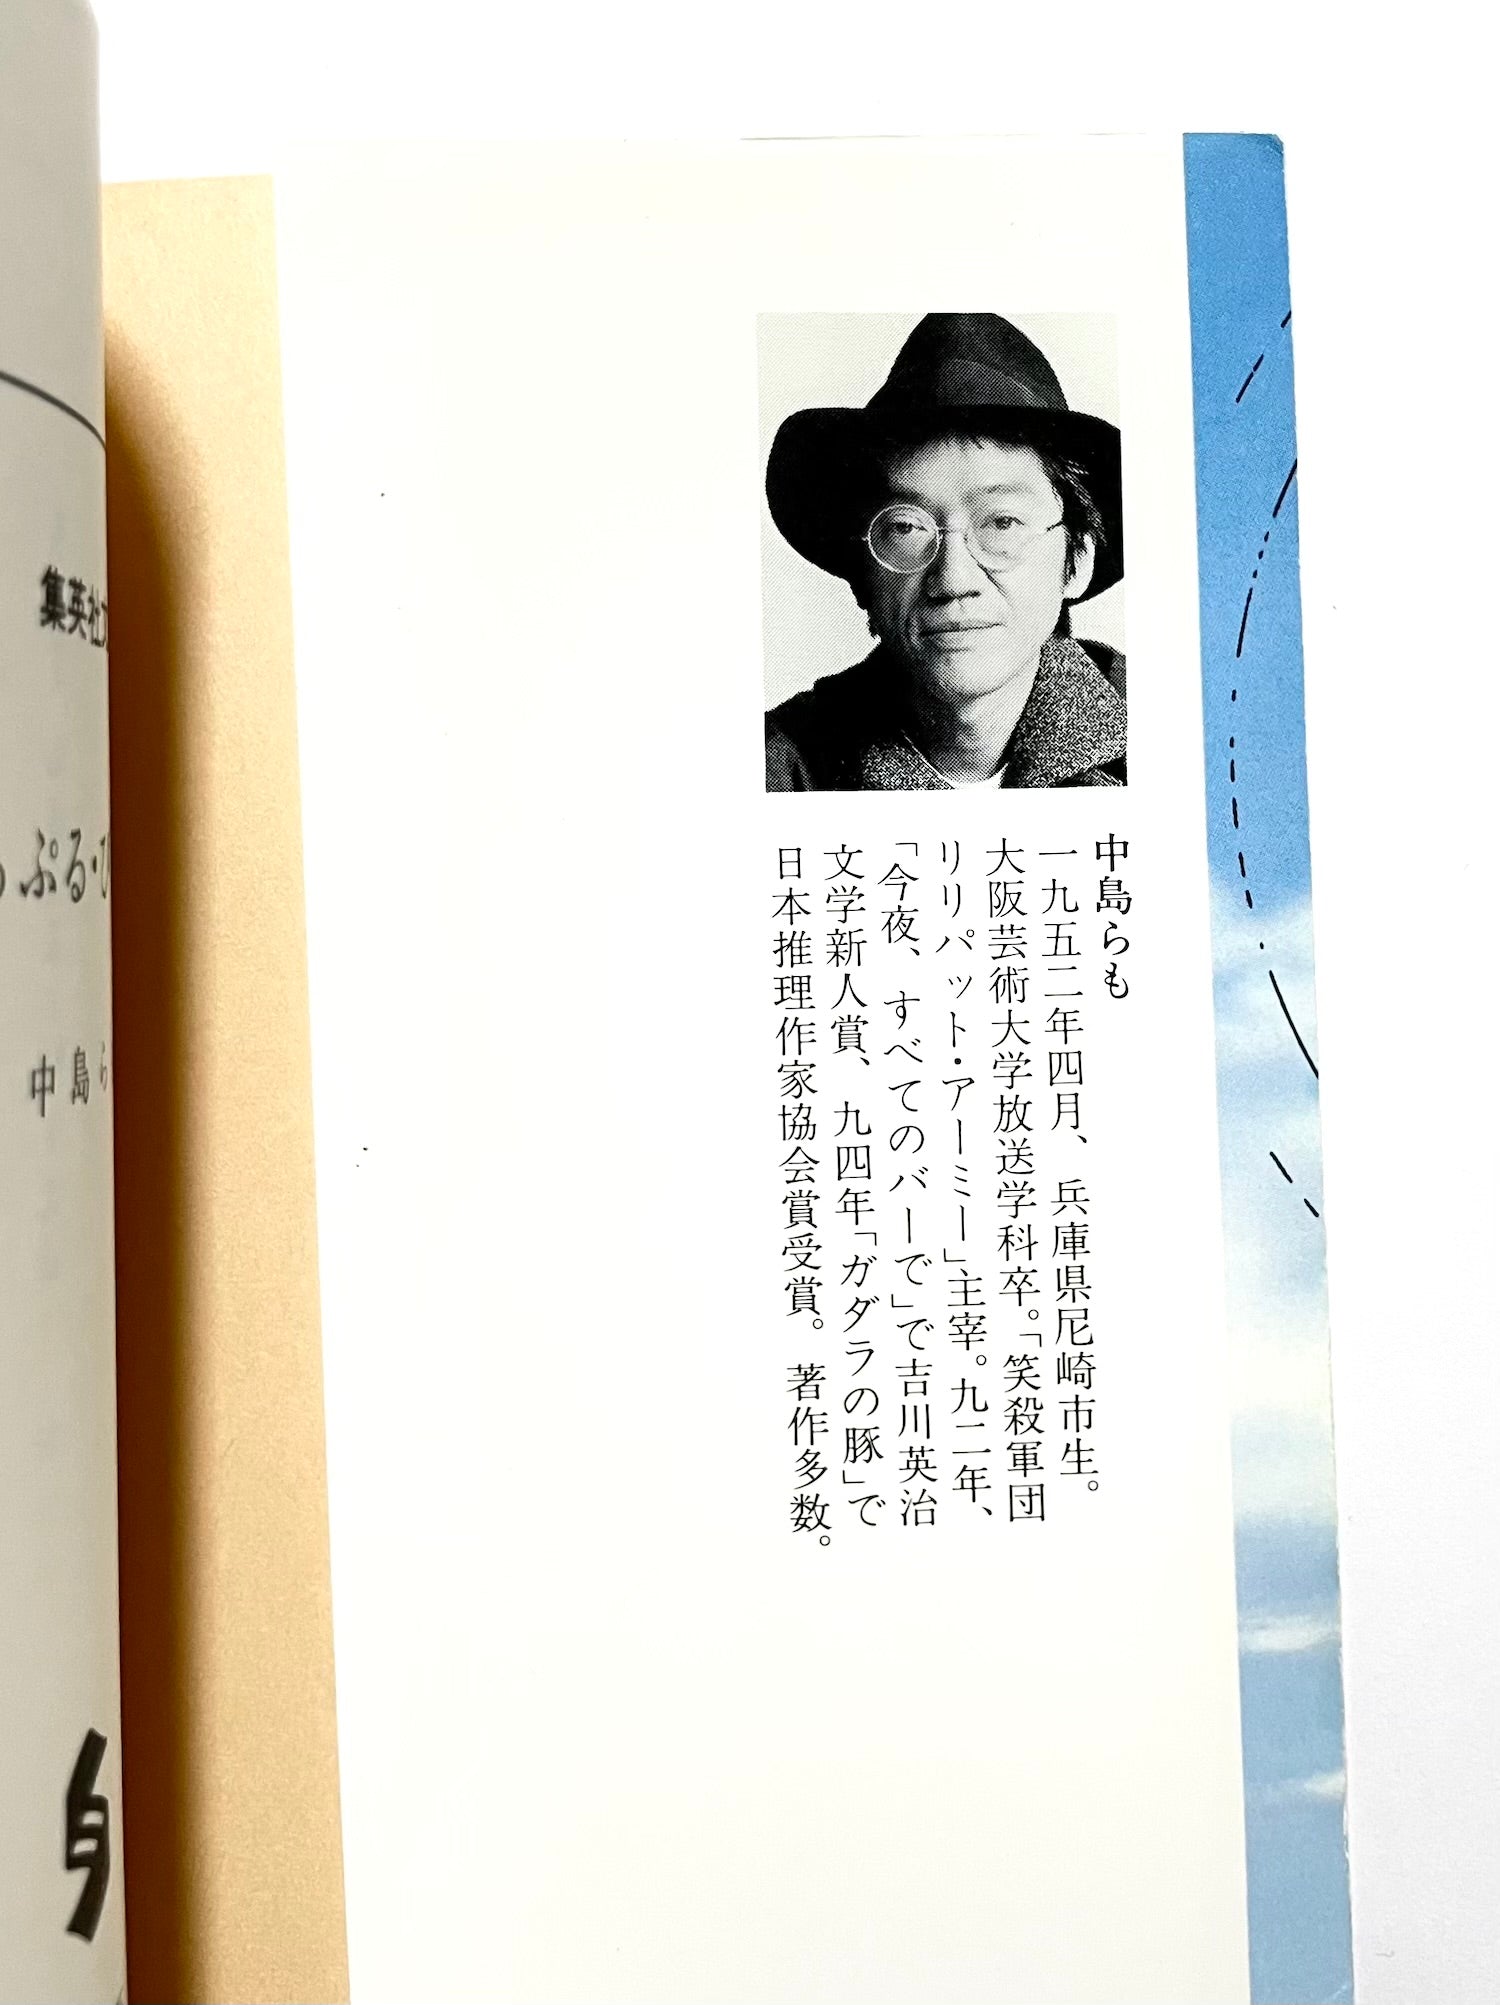 中島らも
一九五二年四月、兵庫県尼崎市生。
大阪芸術大学放送学科卒。「笑殺軍団
リリパット・アーミー」主宰。九二年、
「今夜、すべてのバーで」で吉川英治
文学新人賞、九四年「ガダラの豚」で
日本推理作家協会賞受賞。著作多数。
集英社
ぷる・
中島ら